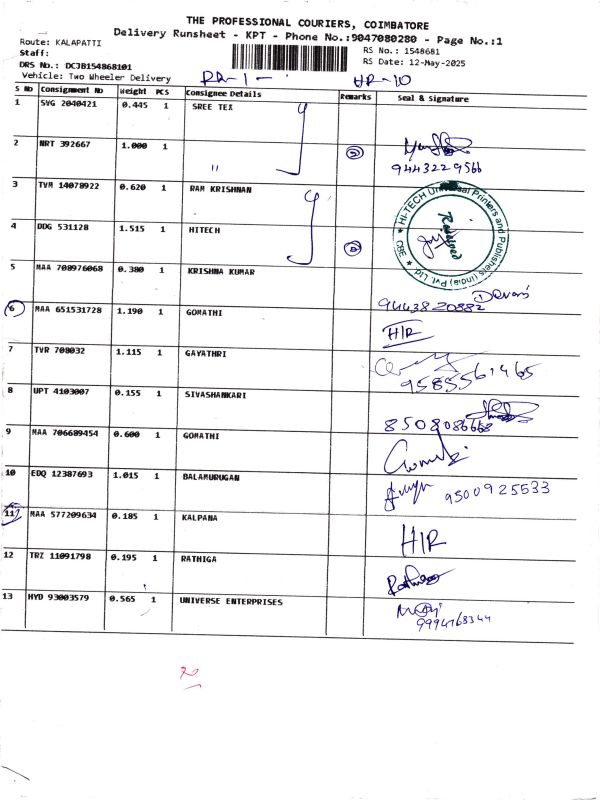 THE PROFESSIONAL COURIERS, COIMBATORE
Delivery Runsheet - KPT - Phone No.:9047080280 - Page No.:1
Route: KALAPATTI
RS No.: 1548681
Staff:
RS Date: 12-May-2025
DRS No.: DCJB154868101
Vehicle: Two Wheeler Delivery
S No Consignment No Weight PCS Consignee Details Remarks Seal & Signature
1 SVG 2040421 0.445 1 SREE TEX
2 NRT 392667 1.000 1 " S
9443229566
3 TVM 14078922 0.620 1 RAM KRISHNAN
HI-TECH Universal Printers and Publishers (India) Pvt. Ltd. CBE
Received
4 DDG 531128 1.515 1 HITECH S
5 MAA 708976068 0.380 1 KRISHNA KUMAR
9443820882
6 MAA 651531728 1.190 1 GOMATHI H/R
7 TVR 708032 1.115 1 GAYATHRI
9585561465
8 UPT 4103007 0.155 1 SIVASHANKARI
8508086668
9 MAA 706689454 0.600 1 GOMATHI
10 EDQ 12387693 1.015 1 BALAMURUGAN 9500925533
11 MAA 577209634 0.185 1 KALPANA H/R
12 TRZ 11091798 0.195 1 RATHIGA
13 HYD 93003579 0.565 1 UNIVERSE ENTERPRISES
9994768344